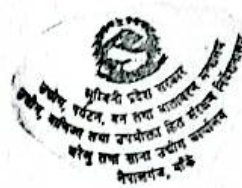 लुम्बिनी प्रदेश सरकार
उद्योग, पर्यटन, वन तथा वातावरण मन्त्रालय
उद्योग, वाणिज्य तथा उपभोक्ता हित संरक्षण निर्देशनालय
घरेलु तथा साना उद्योग कार्यालय
नेपालगंज, बाँके